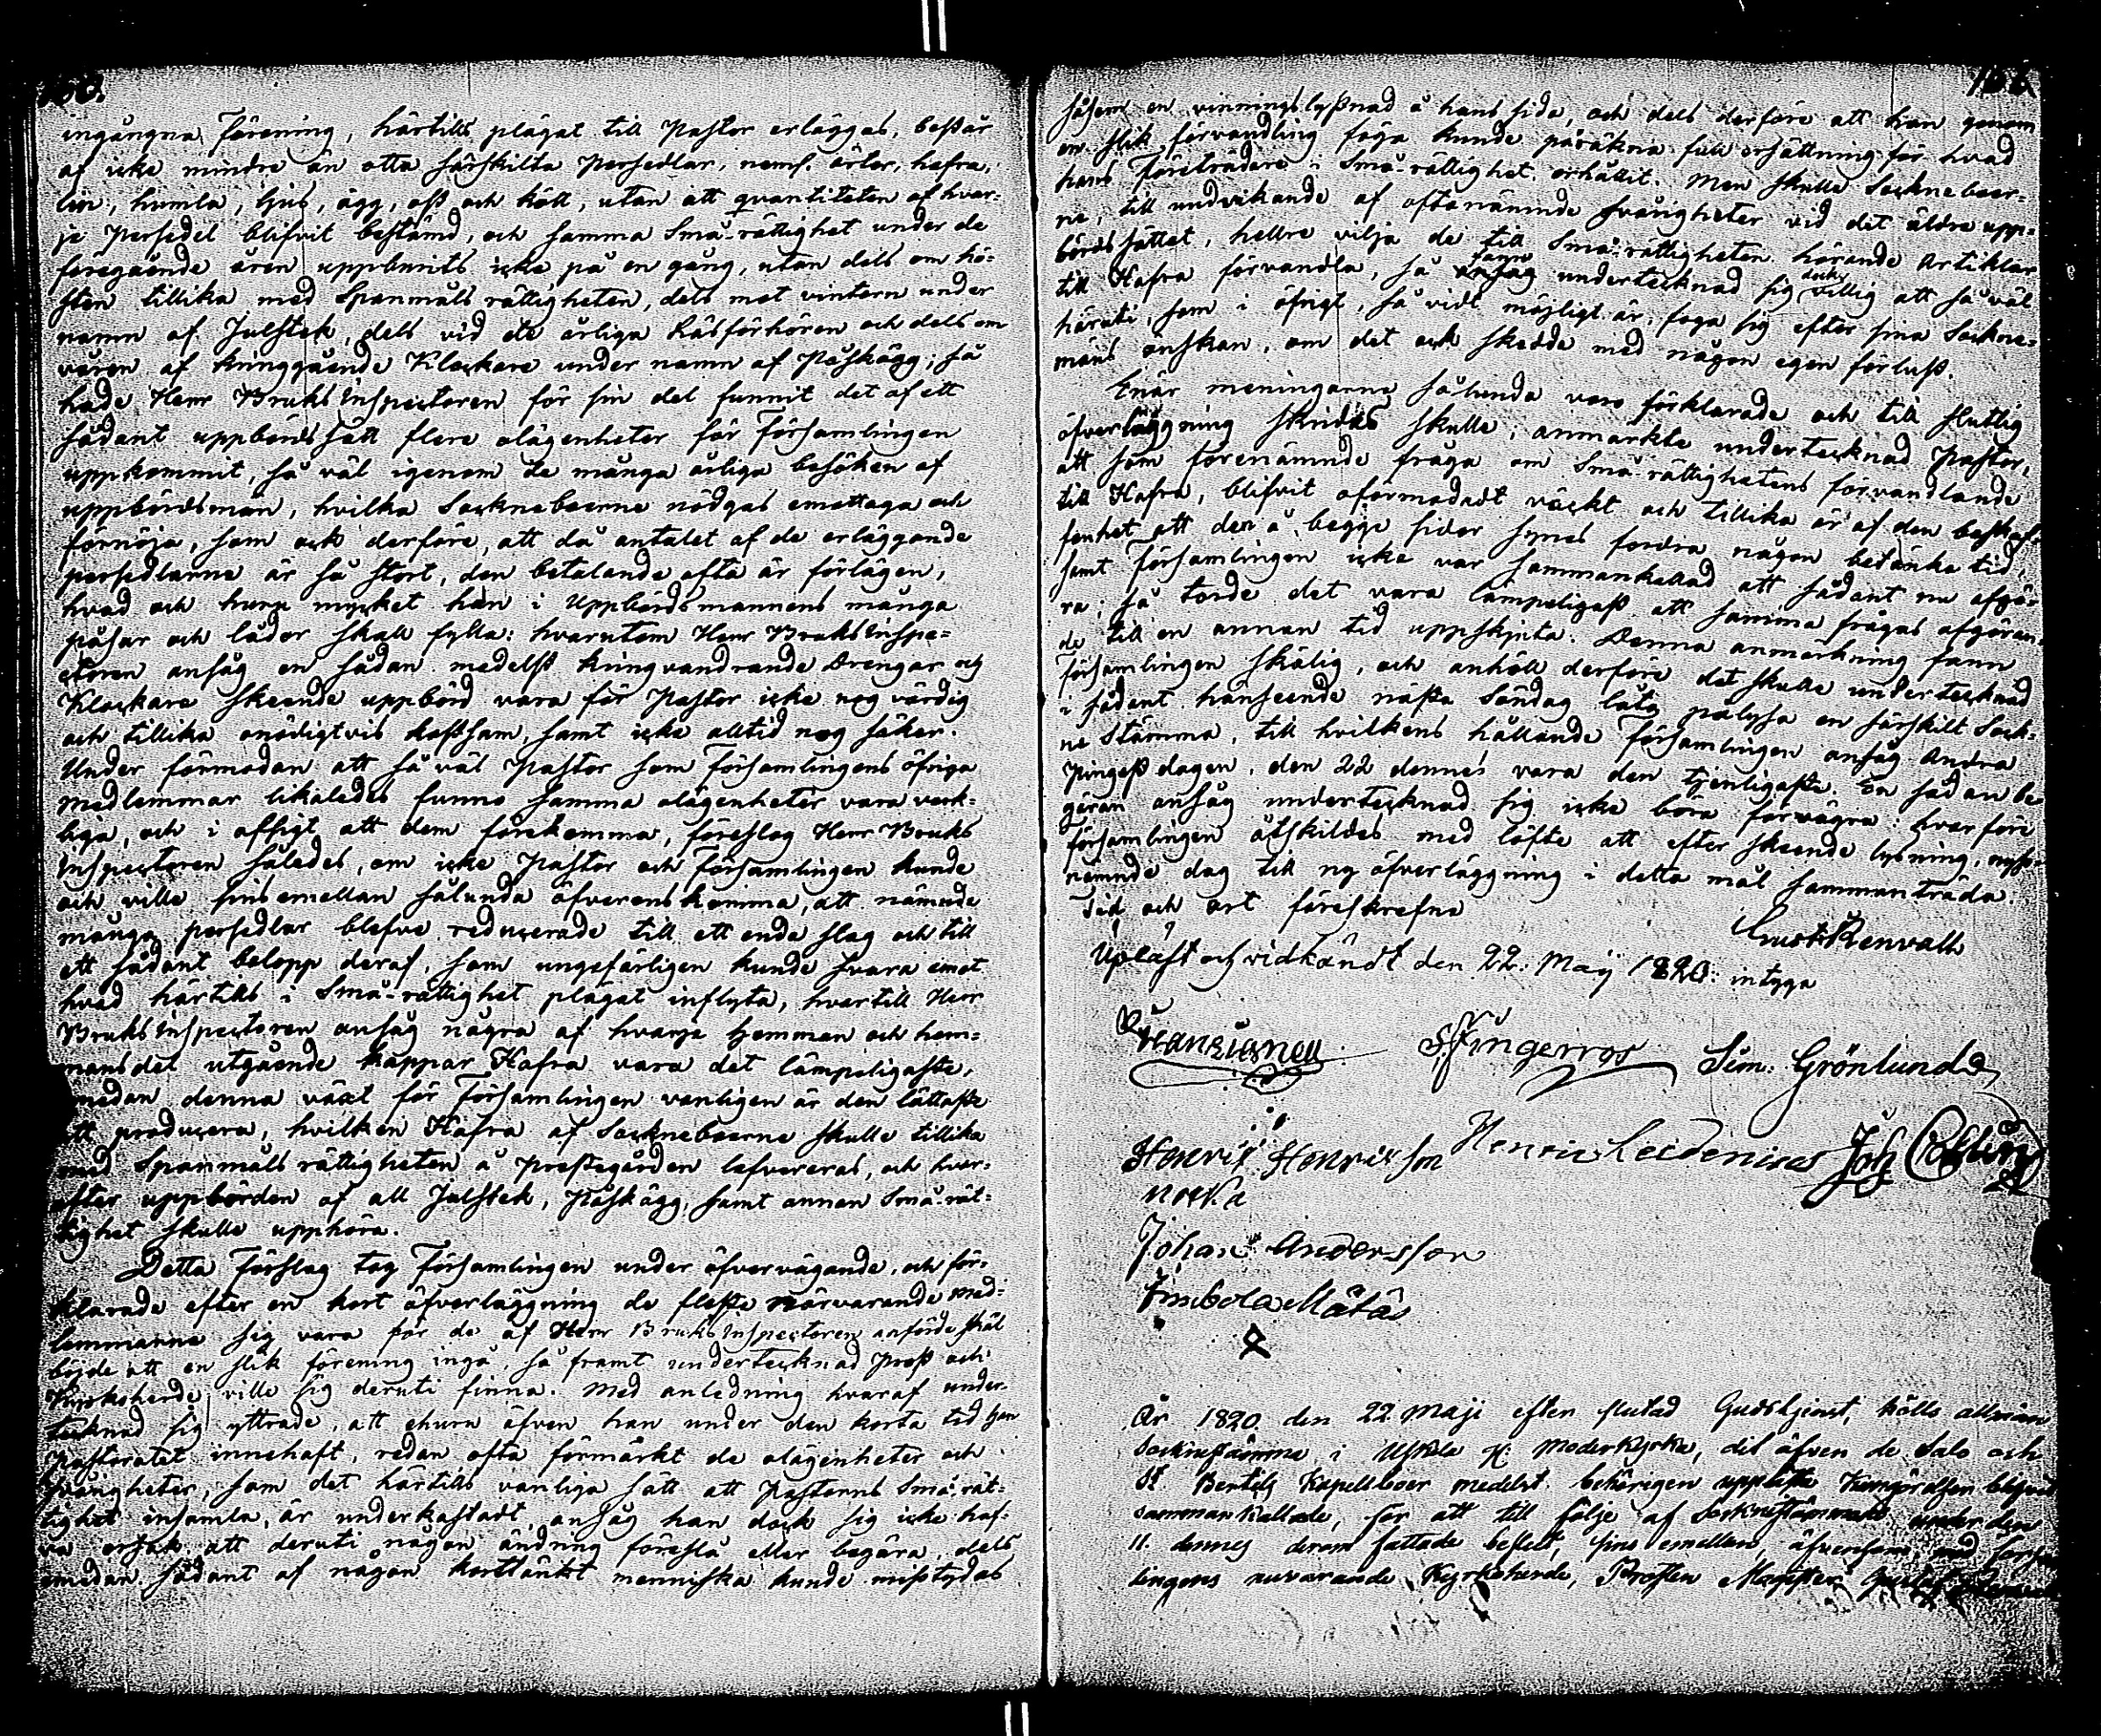 ingångna Förening, härtills plägat till Pastor erläggas, består
af icke mindre än otta särskilta Persedlar, neml. ärter, hafra,
lin, humla, ljus, ägg, ost och kött, utan att qvantiteten af hvar-
je Persedel blifvit bestämd, och samma Små-rättighet under de
föregående åren uppburits icke på en gång, utan dels om hö-
sten tillika med Spanmåls rättigheten, dels mot vintern under
namn af Julstek, dels vid de årliga Läsförhören och dels om
våren af kringgående Klockare under namn af Påskägg; så
hade Herr Bruks Inspectoren för sin del funnit det af ett
sådant uppbördssätt flere olägenheter för Församlingen
uppkommit, så väl igenom de många årliga besöken af
uppbördsmän, hvilka Sockneboerne nödgas emottaga och
förnöja, som ock derföre, att då antalet af de erläggande
persedlarne är så stort, den betalande ofta är förlägen,
hvad och huru mycket han i Uppbördsmannens många
påsar och lådor skall fylla: hvarutom Herr Bruks Inspe-
ctoren ansåg en sådan medelst kringvandrande Drengar och
Klockare skeende uppbörd vara för Pastor icke nog värdig
och tillika onödigtvis kostsam, samt icke alltid nog säker.
Under förmodan att så väl Pastor som Församlingens öfriga
medlemmar likaledes funno samma olägenheter vara verk-
liga, och i afsigt att dem förekomma, föreslog Herr Bruks
Inspectoren således, om icke Pastor och Församlingen kunde
och ville sins emellan sålunda öfverenskomma, att nämnde
många persedlar blefve reducerade till ett enda slag och till
ett sådant belopp deraf, som ungefärligen kunde svara emot
hvad härtills i Små-rättighet plägat inflyta, hvartill Herr
Bruks Inspectoren ansåg några af hvarje hemman och hem-
mansdel utgående kappar Hafra vara det lämpeligaste,
medan denna växt för Församlingen vanligen är den lättaste
att producera, hvilken Hafra af Socknebeerne skulle tillika
med Spanmåls rättigheten å Prestegården lefvereras, och hvar-
efter uppbörden af all Julstek, Påskägg, samt annan Små-rät-
tighet skulle upphöra.
Detta Förslag tog Församlingen under öfvervägande, och för-
klarade efter en kort öfverläggning de fleste närvarande med-
lemmarne sig vara för de af Herr Bruks Inspectoren anförde skäl
böjde att en slik förening ingå, så framt undertecknad Prost och
Kyrkoherde ville sig deruti finna. Med anledning hvaraf under-
tecknad sig yttrade, att ehuru äfven han under den korta tid han
Pastoratet innehaft, redan ofta förmärkt de olägenheter och
svårigheter, som det härtills vanliga sätt att Pastorns Små-rät-
tighet insamla, är underkastadt, ansåg han dock sig icke haf-
va orsak att deruti någon ändring föreslå eller begära, dels
emedan sådant af någon korttänkt menniska kunde misstydas
såsom en vinningslystnad å hans sida, och dels derföre att han genom
en slik förvandling föga kunde påräkna full ersättning för hvad
hans Företrädare i Små-rättighet erhållit. Men skulle Sockneboer-
ne, till undvikande af oftanämnde svårigheter vid det äldre upp-
bördssättet, hellre vilja de till Små-rättigheten hörande Artiklar
till Hafra förvandla, så ansåg fann undertecknad sig dock villig att så väl
häruti, som i öfrigt, så vidt möjligt är, foga sig efter sina Sockne-
mäns önskan, om det ock skedde med någon egen förlust.
Enär meningarne sålunda voro förklarade och till slutlig
öfverläggning skridas skulle, anmärkte undertecknad Pastor,
att som förenämnde fråga om Små-rättighetens förvandlande
till Hafra, blifvit oförmodadt väckt och tillika är af den beskaf-
fenhet att den å begge sidor synes fordra någon betänke tid,
samt Församlingen icke var sammankallad att sådant nu afgö-
ra; så torde det vara lämpeligast att samma frågas afgöran-
de till en annan tid uppskjuta. Denna anmärkning fann
Församlingen skälig, och anhöll derföre det skulle undertecknad
i sådant hänseende nästa Söndag låta pålysa en särskilt Sock-
ne Stämma, till hvilkens hållande Församlingen ansåg Andra
Pingest dagen, den 22 dennes vara den tjenligaste. En sådan be-
gäran ansåg undertecknad sig icke böra förvägra: hvarföre
Församlingen åtskildes med löfte att efter skeende lysning, nyss-
nemnde dag till ny öfverläggning i detta mål sammanträda.
Tid och ort föreskrefne
Gust. Renvall
Upläst och vidkändt den 22. Maij 1820: intyga
S. Fingerroos Sim: Grönlund
Henrik Henriksson Henric Leidenius Joh Collin
Johan Andersson
Matts
År 1820 den 22 Maji efter slutad Gudstjenst, hölls allmän
Sockenstämma i Uskela Moderkyrka, dit äfven de Salo och
St Bertils Kapellboer medelst behörigen uppläste Kungörelsen blifvit
sammankallade, för att till följe af Sockenstämmans under den
11. dennes derom fattade beslut, sins emellan, äfvensom med Försam-
lingens nuvarande Kyrkoherde, Prosten Magister Gustaf